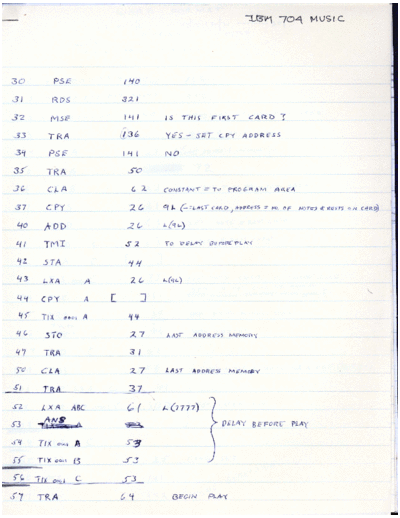 IBM 704 MUSIC
30 PSE 140
31 RDS 321
32 MSE 141 IS THIS FIRST CARD?
33 TRA 136 YES - SET CPY ADDRESS
34 PSE 141 NO
35 TRA 50
36 CLA 62 CONSTANT = TO PROGRAM AREA
37 CPY 26 9L (- = LAST CARD, ADDRESS = NO. OF NOTES & RESTS ON CARD)
40 ADD 26 L(9L)
41 TMI 52 TO DELAY BEFORE PLAY
42 STA 44
43 LXA A 26 L(9L)
44 CPY A [ ]
45 TIX 0001 A 44
46 STO 27 LAST ADDRESS MEMORY
47 TRA 31
50 CLA 27 LAST ADDRESS MEMORY
51 TRA 37
52 LXA ABC 61 L(7777)
53 ANS
DELAY BEFORE PLAY
54 TIX 0001 A 53
55 TIX 0001 B 53
56 TIX 0001 C 53
57 TRA 64 BEGIN PLAY